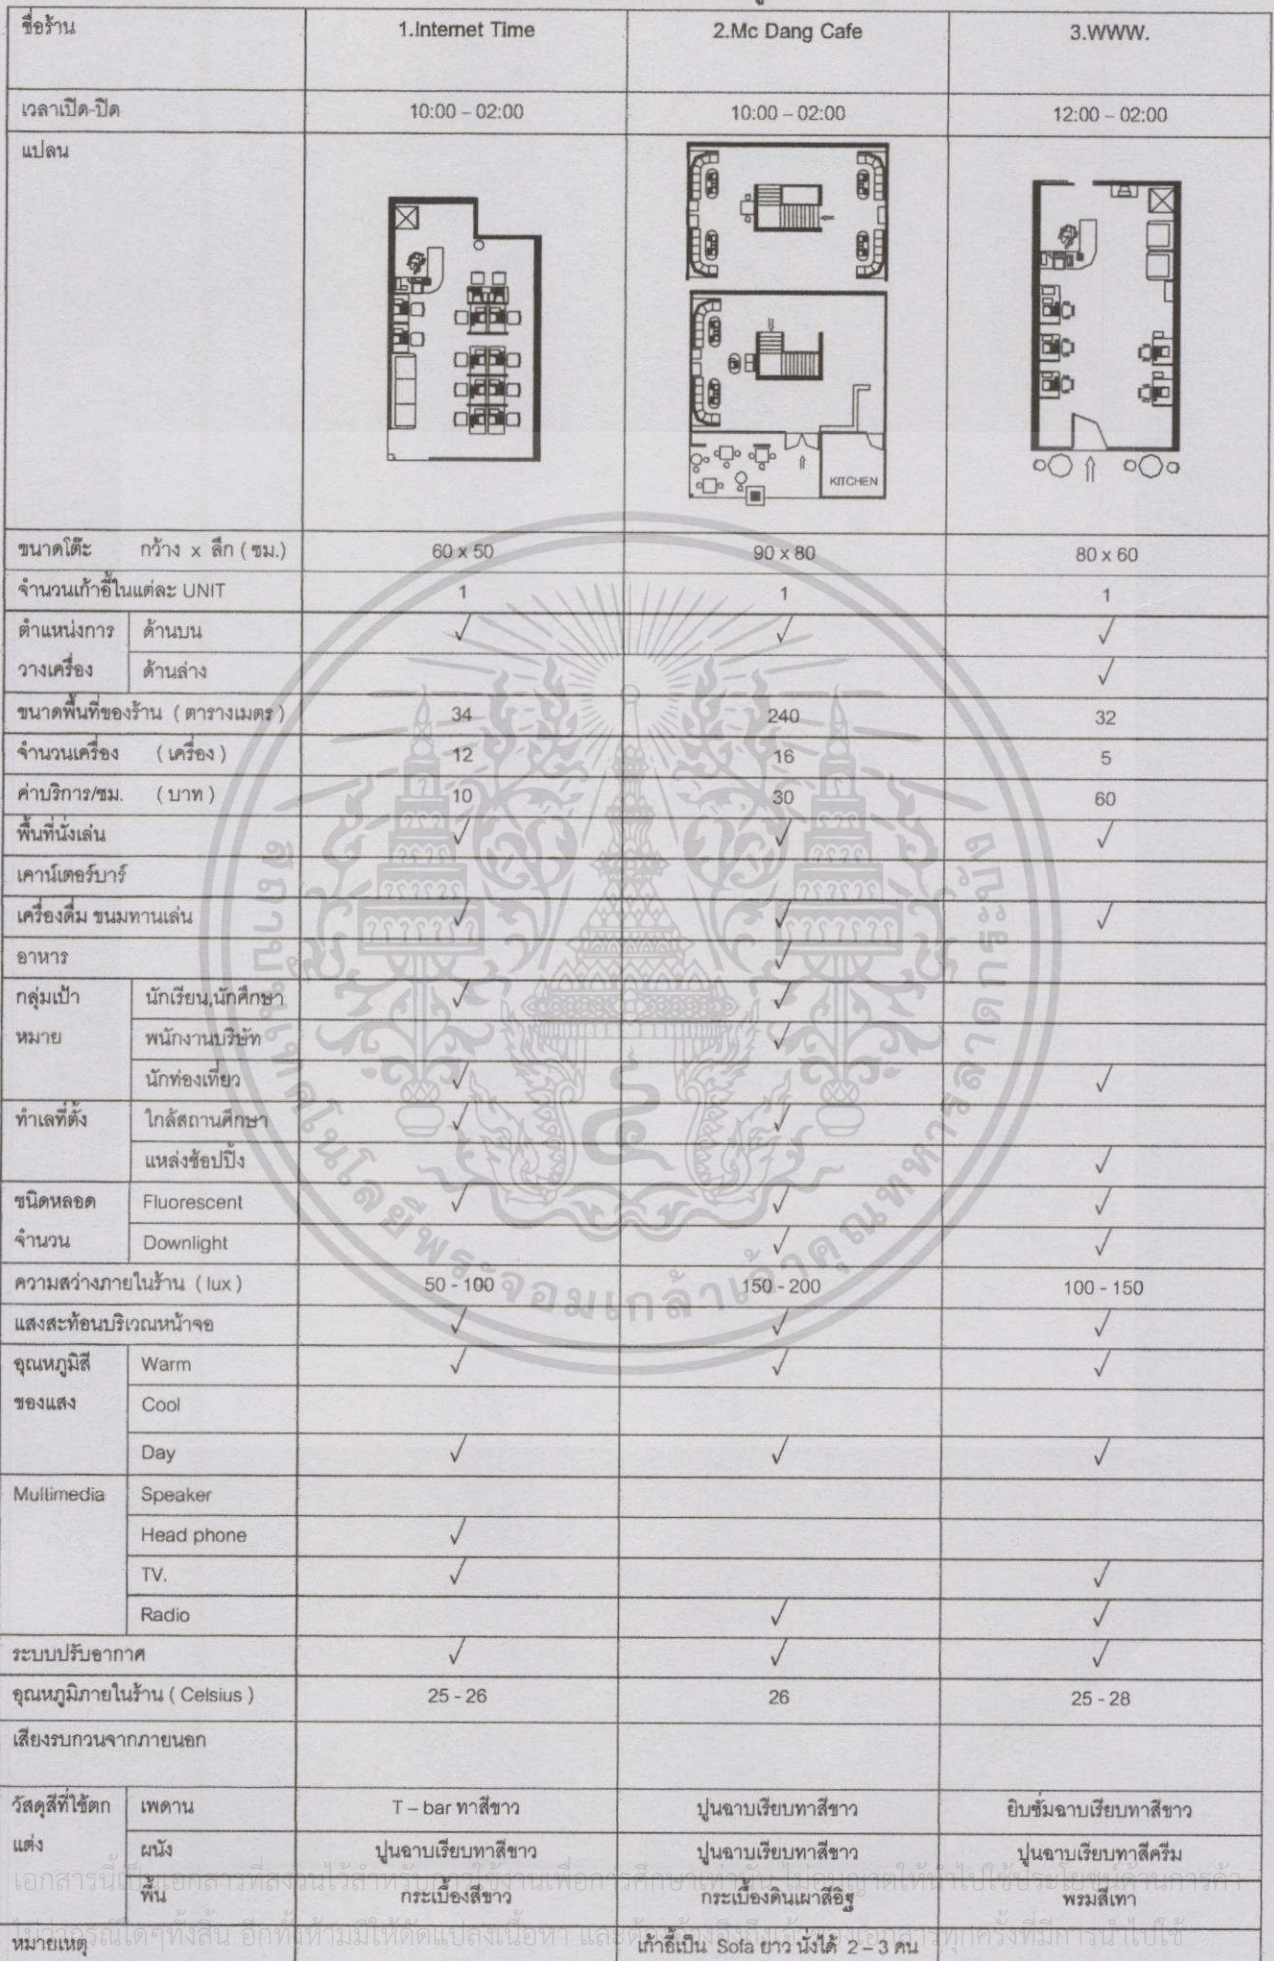 ชื่อร้าน 1.Internet Time 2.Mc Dang Cafe 3.WWW.
เวลาเปิด-ปิด 10:00 – 02:00 10:00 – 02:00 12:00 – 02:00
แปลน
KITCHEN
ขนาดโต๊ะ กว้าง x ลึก ( ซม.) 60 x 50 90 x 80 80 x 60
จำนวนเก้าอี้ในแต่ละ UNIT 1 1 1
ตำแหน่งการ ด้านบน √ √ √
วางเครื่อง ด้านล่าง √
ขนาดพื้นที่ของร้าน ( ตารางเมตร ) 34 240 32
จำนวนเครื่อง ( เครื่อง ) 12 16 5
ค่าบริการ/ชม. ( บาท ) 10 30 60
พื้นที่นั่งเล่น √ √ √
เคาน์เตอร์บาร์
เครื่องดื่ม ขนมทานเล่น √ √ √
อาหาร √
กลุ่มเป้า นักเรียน,นักศึกษา √ √
หมาย พนักงานบริษัท √
นักท่องเที่ยว √ √
ทำเลที่ตั้ง ใกล้สถานศึกษา √ √
แหล่งช้อปปิ้ง √
ชนิดหลอด Fluorescent √ √ √
จำนวน Downlight √ √
ความสว่างภายในร้าน ( lux ) 50 - 100 150 - 200 100 - 150
แสงสะท้อนบริเวณหน้าจอ √ √ √
อุณหภูมิสี Warm √ √ √
ของแสง Cool
Day √ √ √
Mullimedia Speaker
Head phone √
TV. √ √
Radio √ √
ระบบปรับอากาศ √ √ √
อุณหภูมิภายในร้าน ( Celsius ) 25 - 26 26 25 - 28
เสียงรบกวนจากภายนอก
วัสดุสีที่ใช้ตก เพดาน T – bar ทาสีขาว ปูนฉาบเรียบทาสีขาว ยิบซั่มฉาบเรียบทาสีขาว
แต่ง ผนัง ปูนฉาบเรียบทาสีขาว ปูนฉาบเรียบทาสีขาว ปูนฉาบเรียบทาสีครีม
พื้น กระเบื้องสีขาว กระเบื้องดินเผาสีอิฐ พรมสีเทา
หมายเหตุ เก้าอี้เป็น Sofa ยาว นั่งได้ 2 – 3 คน
สถาบันเทคโนโลยีพระจอมเกล้าเจ้าคุณทหารลาดกระบัง
เอกสารนี้เป็นเอกสารที่สงวนไว้สำหรับการใช้งานเพื่อการศึกษาเท่านั้น ไม่อนุญาตให้นำไปใช้ประโยชน์ด้านการค้า
ไม่ว่ากรณีใดๆทั้งสิ้น อีกทั้งห้ามมิให้ดัดแปลงเนื้อหา และต้องอ้างอิงถึงเจ้าของเอกสารทุกครั้งที่มีการนำไปใช้